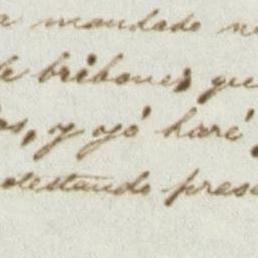 mandado
de bribones, que
os, y yó haré
otestando pres